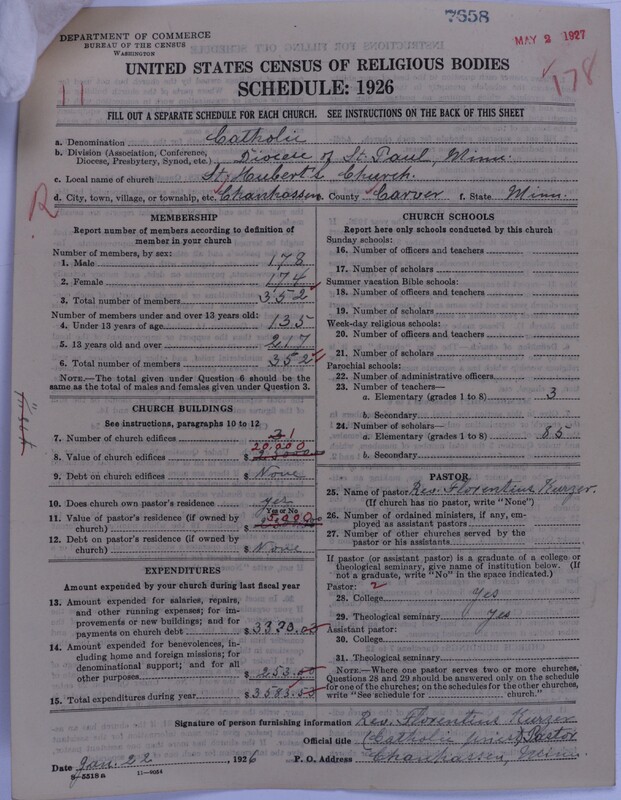 7658
DEPARTMENT OF COMMERCE
BUREAU OF THE CENSUS
WASHINGTON
MAY 2 1927
178
11
UNITED STATES CENSUS OF RELIGIOUS BODIES
SCHEDULE: 1926
FILL OUT A SEPARATE SCHEDULE FOR EACH CHURCH. SEE INSTRUCTIONS ON THE BACK OF THIS SHEET
a. Denomination Catholic
b. Division (Association, Conference, Diocese, Presbytery, Synod, etc.) Diocese of St. Paul, Minn.
c. Local name of church St. Hubert's Church.
d. City, town, village, or township, etc. Chanhassen e. County Carver f. State Minn.
R
MEMBERSHIP
Report number of members according to definition of
member in your church
Number of members, by sex:
1. Male 178
2. Female 174
3. Total number of members 352
Number of members under and over 13 years old:
4. Under 13 years of age 135
5. 13 years old and over 217
6. Total number of members 352
NOTE.—The total given under Question 6 should be
same as the total of males and females given under Question 3.
CHURCH BUILDINGS
See instructions, paragraphs 10 to 12
7. Number of church edifices 1
20,000
8. Value of church edifices $
9. Debt on church edifices $ None
10. Does church own pastor's residence yes
Yes or No
11. Value of pastor's residence (if owned by
church) $
12. Debt on pastor's residence (if owned by
church) $ None
EXPENDITURES
Amount expended by your church during last fiscal year
13. Amount expended for salaries, repairs,
and other running expenses; for im-
provements or new buildings; and for
payments on church debt $
14. Amount expended for benevolences, in-
cluding home and foreign missions; for
denominational support; and for all
other purposes $ 253.00
15. Total expenditures during year $ 3583.53
CHURCH SCHOOLS
Report here only schools conducted by this church
Sunday schools:
16. Number of officers and teachers
17. Number of scholars
Summer vacation Bible schools:
18. Number of officers and teachers
19. Number of scholars
Week-day religious schools:
20. Number of officers and teachers
21. Number of scholars
Parochial schools:
22. Number of administrative officers
23. Number of teachers—
a. Elementary (grades 1 to 8) 3
b. Secondary
24. Number of scholars—
a. Elementary (grades 1 to 8) 85
b. Secondary
PASTOR
25. Name of pastor Rev. Florentius Kurzer.
(If church has no pastor, write "None")
26. Number of ordained ministers, if any, em-
ployed as assistant pastors
27. Number of other churches served by the
pastor or his assistants
If pastor (or assistant pastor) is a graduate of a college or
theological seminary, give name of institution below. (If
not a graduate, write "No" in the space indicated.)
Pastor: 2
28. College yes
29. Theological seminary yes
Assistant pastor:
30. College
31. Theological seminary
NOTE.—Where one pastor serves two or more churches,
Questions 28 and 29 should be answered only on the schedule
for one of the churches; on the schedules for the other churches,
write "See schedule for church."
Signature of person furnishing information Rev. Florentius Kurzer
Official title (Catholic priest) Pastor
Date Jan. 22, 1926 P. O. Address Chanhassen, Minn.
5518 a 11—9054